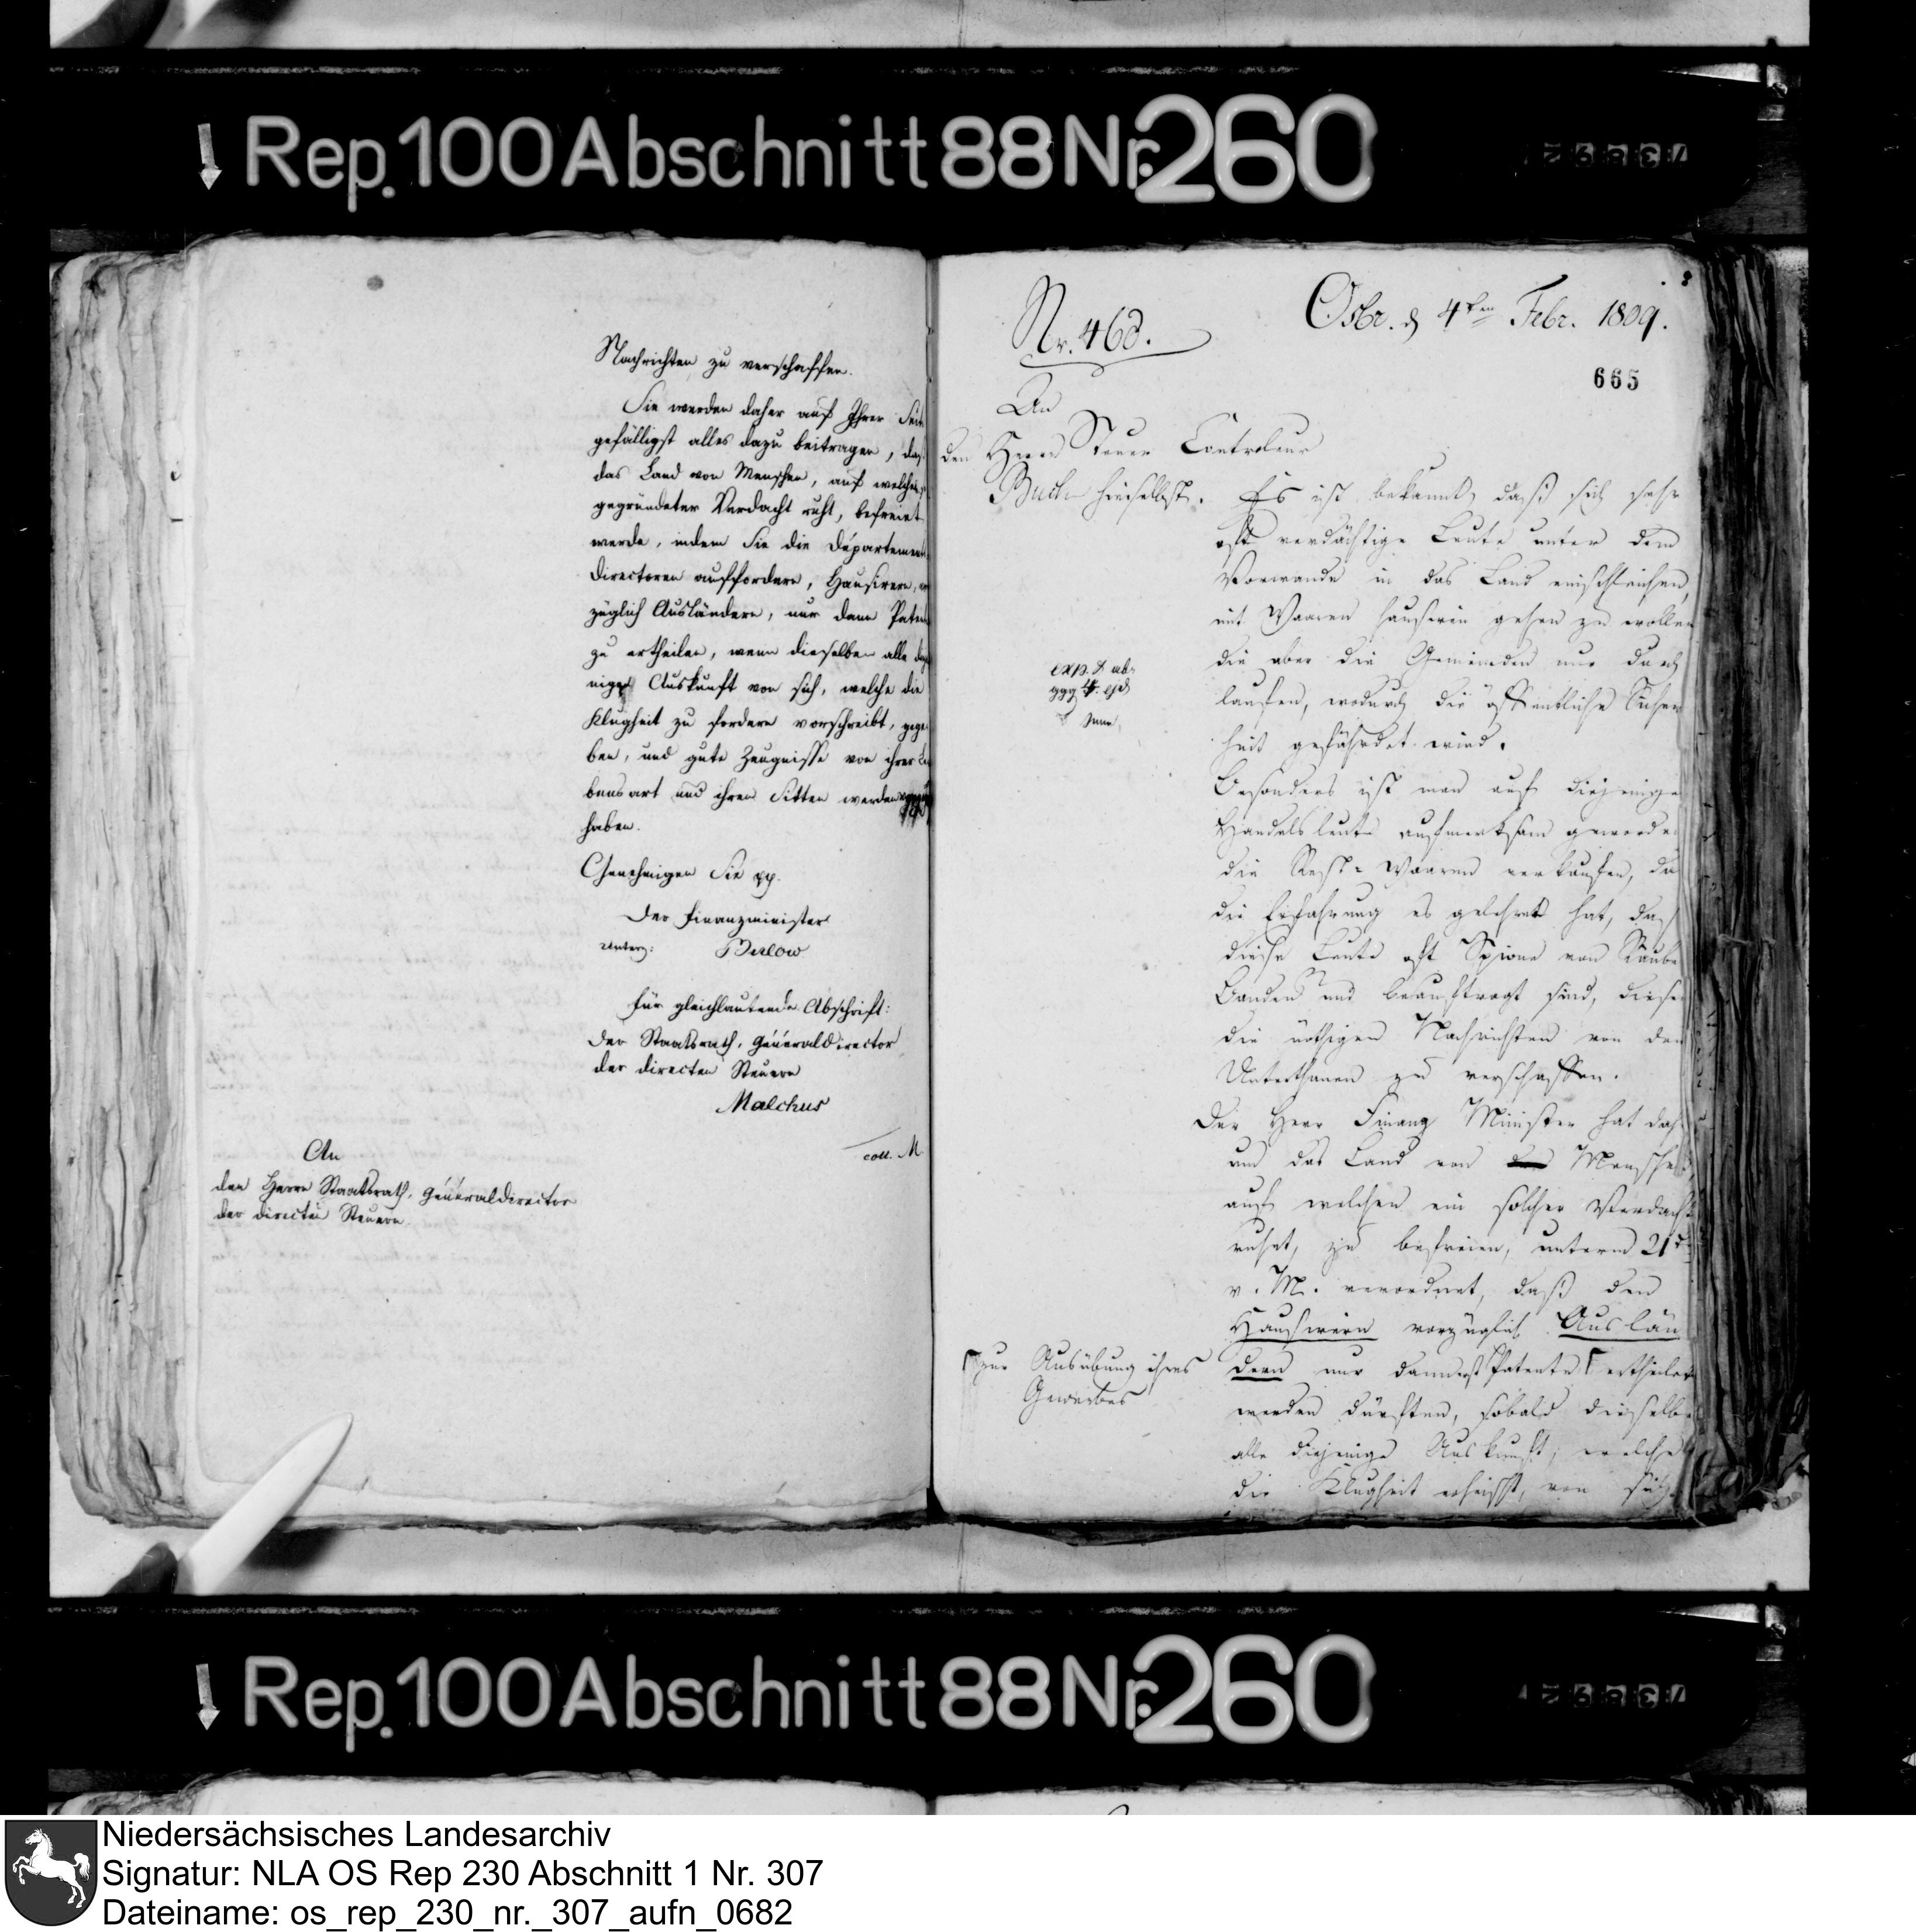 Rep. 100 Abschnitt 88 Nr. 260
Nachrichten zu verschaffen.
Sie werden daher auf Ihrer Seite
gefälligst alles dazu beitragen, daß
das Land von Menschen, auf welchen
gegründeter Verdacht ruht, befreiet
werde, indem Sie die Departements
Directoren auffordern, Hausirern,
züglich Ausländern, nur dann Patente
zu ertheilen, wenn dieselben alle
nige Auskunft von sich, welche die
Klugheit zu fordern vorschreibt, gege
ben, und gute Zeugnisse von ihrer Le
bensart und ihren Sitten werden
haben.
Genehmigen Sie pp.
Der Finanzminister
Unterz: Bulow
Für gleichlautende Abschrift:
Der Staatsrath, Généraldirector
der directen Steuern
Malchus
coll. M
An
den Herrn Staatsrath, Généraldirector
der directen Steuern
Nr. 468.
Osbr. d 4ten Febr. 1809.
665
An
den Herrn Steuer Controleur
Buch hieselbst.
Es ist bekannt, daß sich sehr
oft verdächtige Leute unter dem
Vorwande in das Land einschleichen,
mit Waaren hausiren gehen zu wollen
die aber die Gemeinden nur durch
laufen, wodurch die öffentliche Sicher
heit gefährdet wird.
Besonders ist man auf diejenige
Handelsleute aufmerksam geworden
die Rest-Waaren verkaufen, da
die Erfahrung es gelehrt hat, daß
diese Leute oft Spione von Räuber
Banden und beauftragt sind, diesen
die nöthigen Nachrichten von den
Unterthanen zu verschaffen.
Der Herr Finanz Minister hat daher
um das Land von Menschen,
auf welchen ein solcher Verdacht
ruhet, zu befreien, unterm 21ten
v. M. verordnet, daß den
Hausirern vorzüglich Auslän
dern nur dannerst Patente ertheilet
zur Ausübung ihres
Gewerbes
werden dürften, sobald dieselben
alle diejenige Auskunft, welche
die Klugheit erheischt, von sich
Rep. 100 Abschnitt 88 Nr. 260
Niedersächsisches Landesarchiv
Signatur: NLA OS Rep 230 Abschnitt 1 Nr. 307
Dateiname: os_rep_230_nr._307_aufn_0682